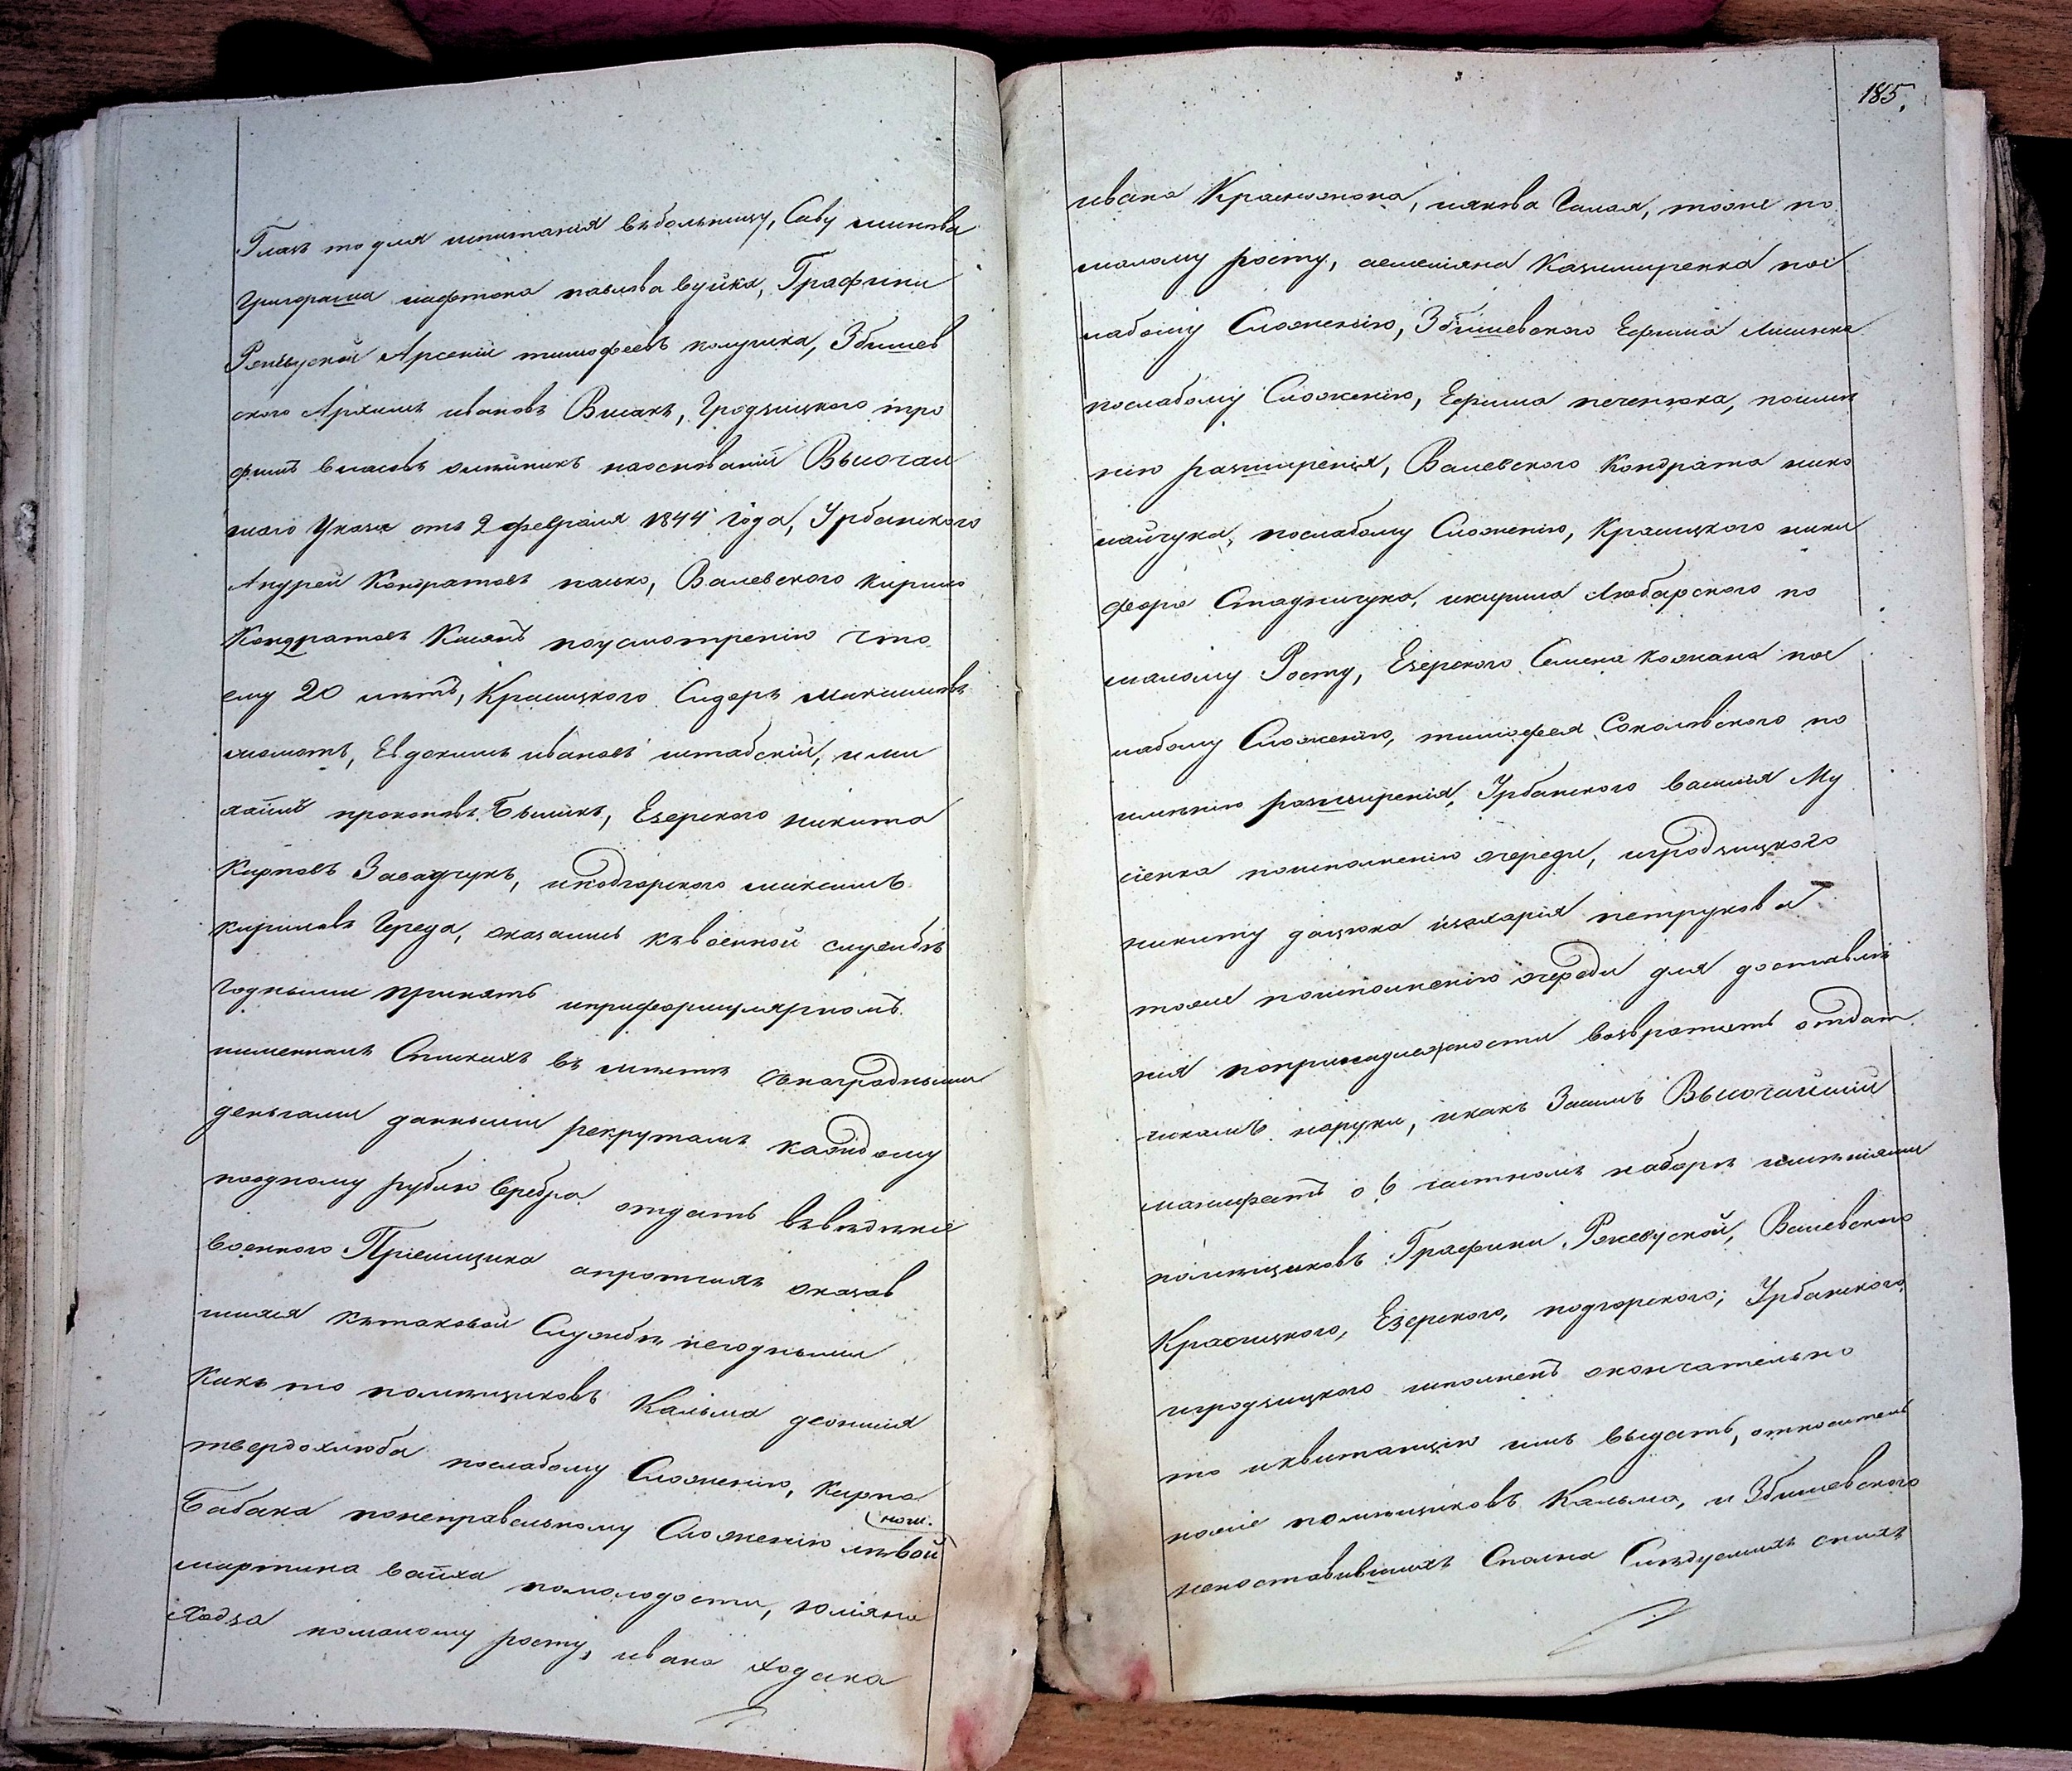 Глазъ то для испитанія въ больницу, Саву
Григораша нафтока павлова вуйка, Графини
Ржевуской Арсеній тимофеевъ получка, Збышев
ского Архипъ ивановъ Вислакъ, Гродзицкого тро
фимъ власовъ олійникъ на основаніи Высочай
шаго Указа отъ 2 февраля 1844 года, Урбанского
Андрей Кондратовъ пасько, Валевского кирило
Кондратовъ Касянъ по усмотренію что
ему 20 летъ, Красицкого Сидоръ Максимовъ
Евдокимъ ивановъ штабскій, и ми
хайло прокоповъ Быликъ, Езерского никита
Карповъ Завадчукъ, и подгорского максимъ
кириловъ Череда, оказались къ военной службѣ
годными принять и при формулярномъ
именномъ Спискахъ въ месте съ наградными
деньгами данными рекрутамъ каждому
по одному рублю Сребра отдать въ вѣдѣніе
военного Пріемщика а протчихъ оказав
шихся къ таковой Службѣ негодными
Какъ то помѣщиковъ Кальма деонисія
твердохлѣба по слабому Сложенію, Карпа
Бабака по неправильному Сложенію лѣвой
ноги.
мартина вайха по молодости, юліяна
Ходза по малому росту, ивана ходака
185.
ивана Красножона, иякова Галая, тоже по
малому росту, демеяна Казимиренка по с
лабому Сложенію, Збышевского Ефима Лисинка
по слабому Сложенію, Ефима печенюка, по имѣ
нію разширенія, Валевского Кондрата нико
лайчука, по слабому Сложенію, Красицкого ники
фора Стадничука, и кирила Любарского по
малому Росту, Езерского Семена кожана по с
лабому Сложенію, тимофея Сокаловского по
имѣнію разширенія, Урбанского василія Му
сіенка по исполненію очереди, и гродзицкого
никиту дацюка и захарія петрукова
тоже по исполненію очереди для доставлѣ
нія по принадлежности возвратить отдат
чикамъ на руки, и какъ Засимъ Высочайшій
манифестъ о 6 частномъ наборѣ имѣніями
помѣщиковъ Графини Ржевуской, Валевского
Красицкого, Езерского, подгорского, Урбанского,
и гродзицкого исполненъ окончательно
то и квитанцію имъ выдать, относитель
но же помѣщиковъ Кальма, и Збышевского
непоставившихъ Сполна Слѣдуемыхъ снихъ